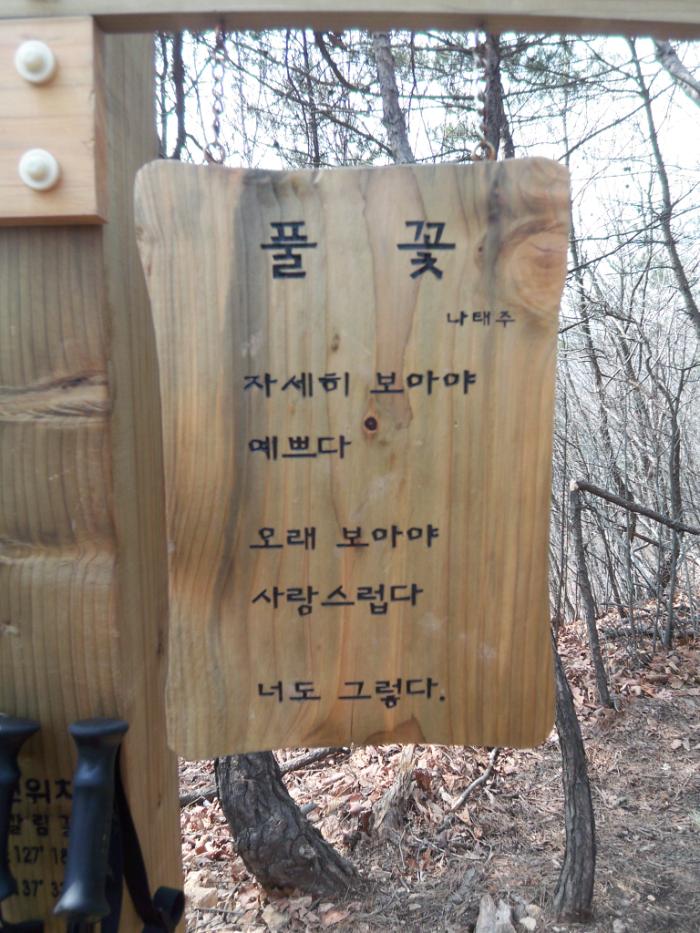 풀 꽃
나태주
자세히 보아야
예쁘다
오래 보아야
사랑스럽다
너도 그렇다.
위치
127°
37°